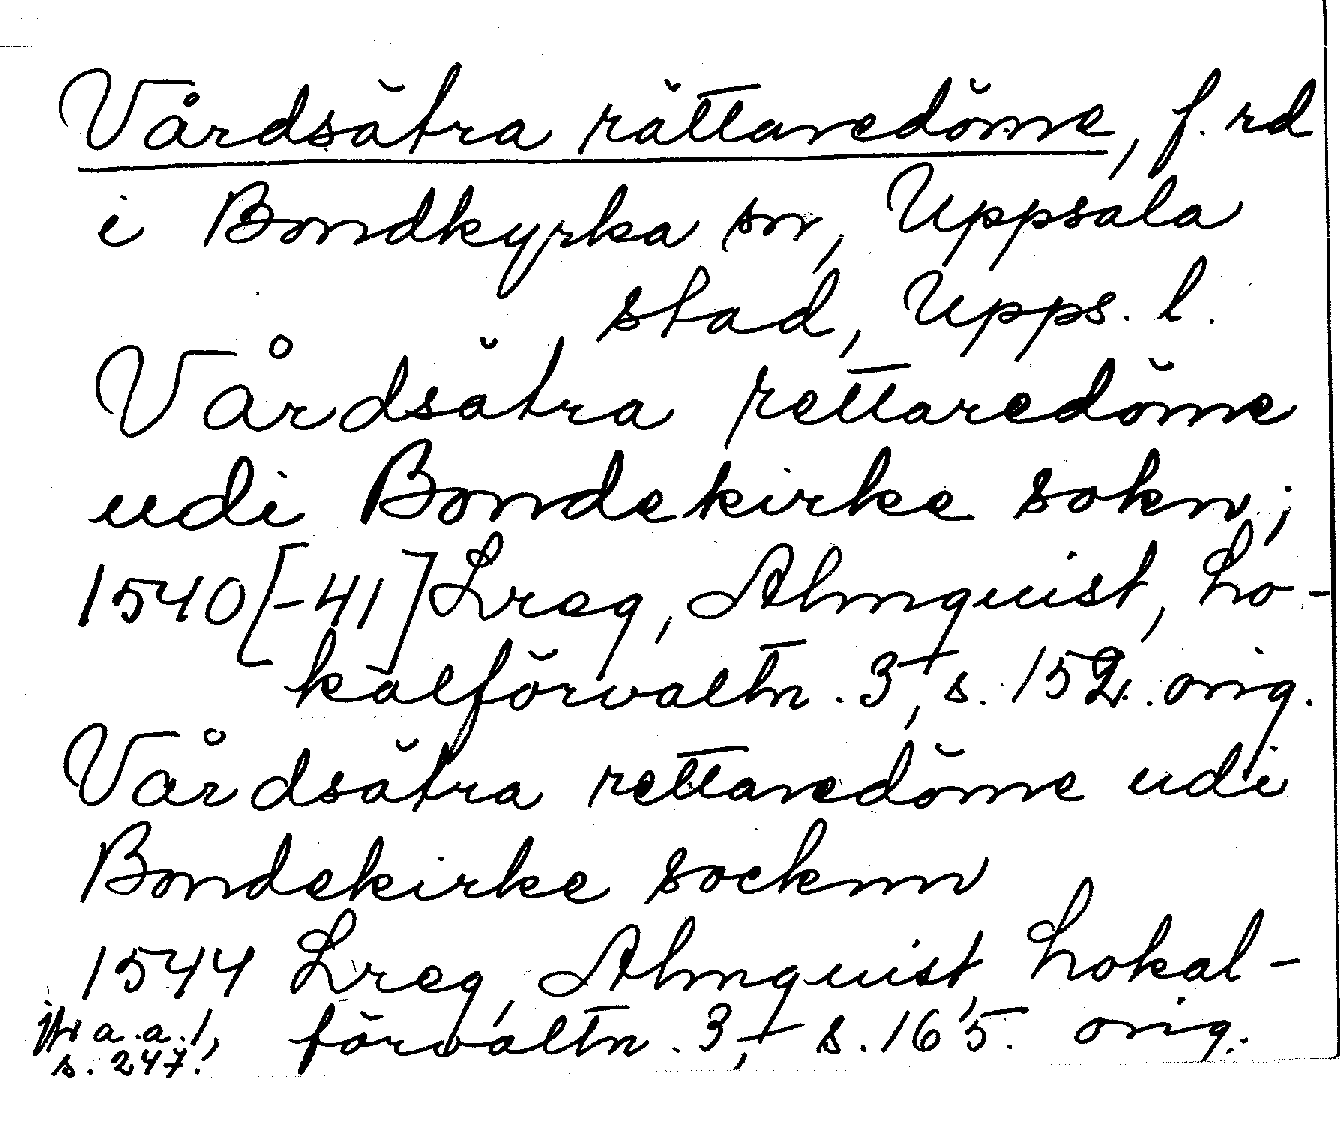 Vårdsätra rättaredöme, f. rd
i Bondkyrka sn, Uppsala
stad, Upps. l.
Vårdsätra rettaredöme
udi Bondekirke sokn;
1540[-41] Lreg, Almquist, Lo-
kalförvaltn. 3, s. 152. orig.
Vårdsätra rettaredöme udi
Bondekirke socknn
1544 Lreg, Almquist, Lokal-
förvaltn. 3, s. 165. orig.
jfr a.a. 1,
s. 247.